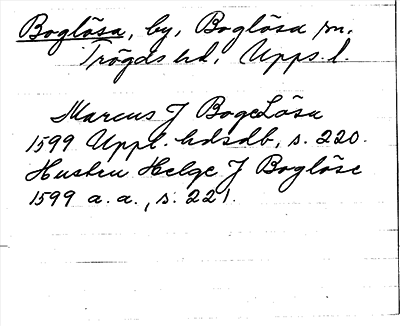 Boglösa, by, Boglösa sn.
Trögds hd. Upps. l.
Marcus J BogeLösa
1599 Uppl. hdsdb, s. 220.
Hustru Helge J Boglöse
1599 a. a., s. 221.